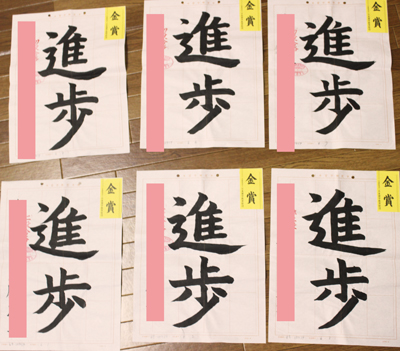 金賞
進歩
金賞
進歩
金賞
進歩
金賞
進歩
金賞
進歩
金賞
進歩